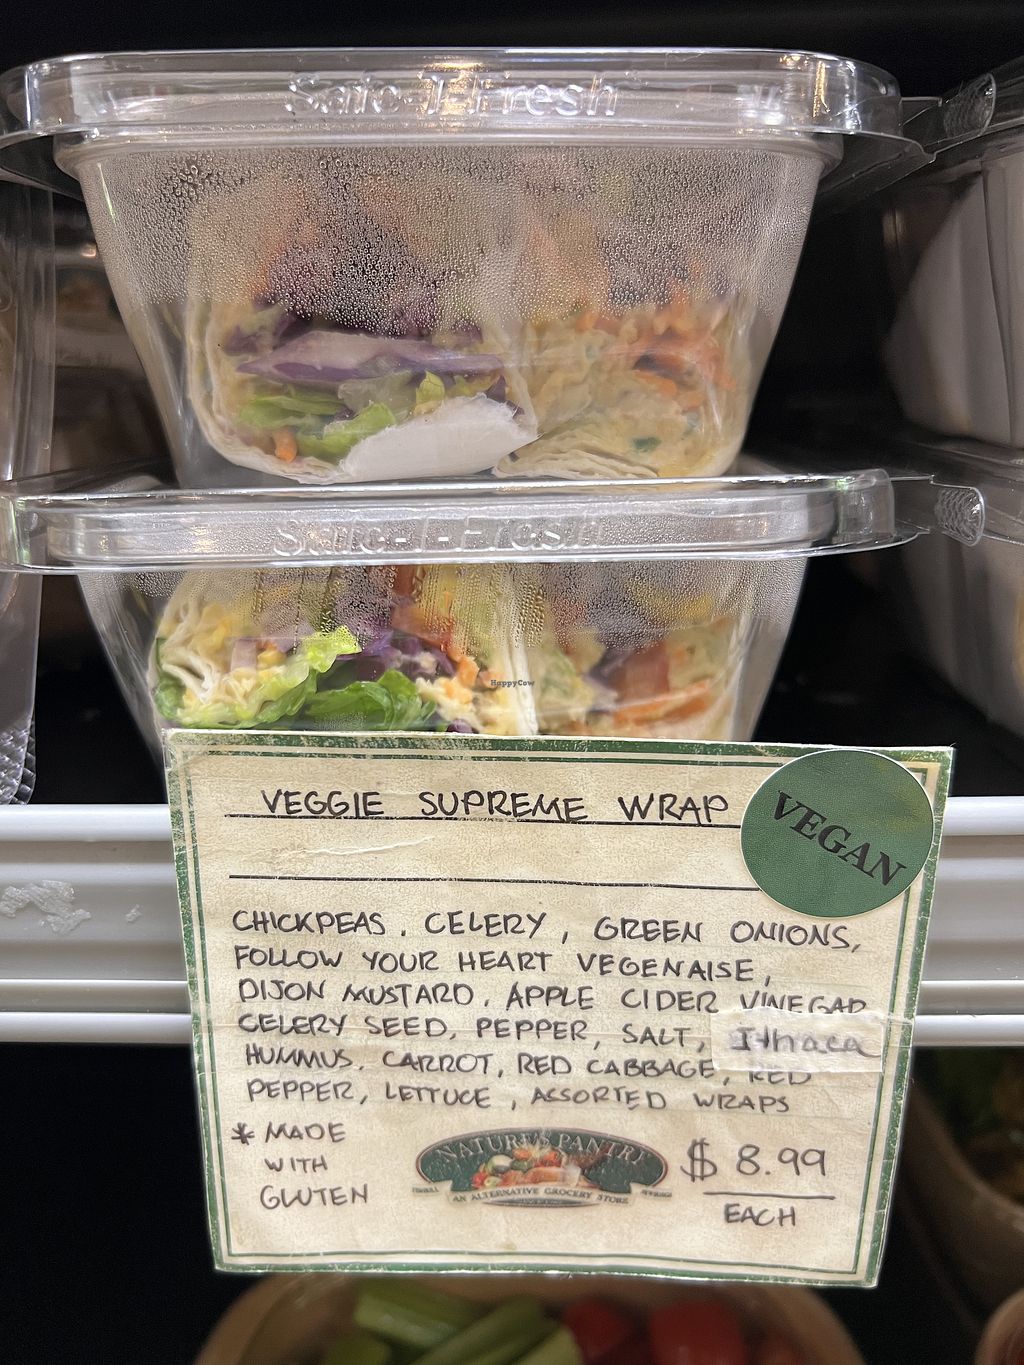 Safe-T-Fresh
Safe-T-Fresh
HappyCow
VEGGIE SUPREME WRAP
VEGAN
CHICKPEAS, CELERY, GREEN ONIONS,
FOLLOW YOUR HEART VEGENAISE,
DIJON MUSTARD, APPLE CIDER VINEGAR
CELERY SEED, PEPPER, SALT, Ithaca
HUMMUS, CARROT, RED CABBAGE, RED
PEPPER, LETTUCE, ASSORTED WRAPS
* MADE
WITH
GLUTEN
NATURE'S PANTRY
AN ALTERNATIVE GROCERY STORE
$ 8.99
EACH